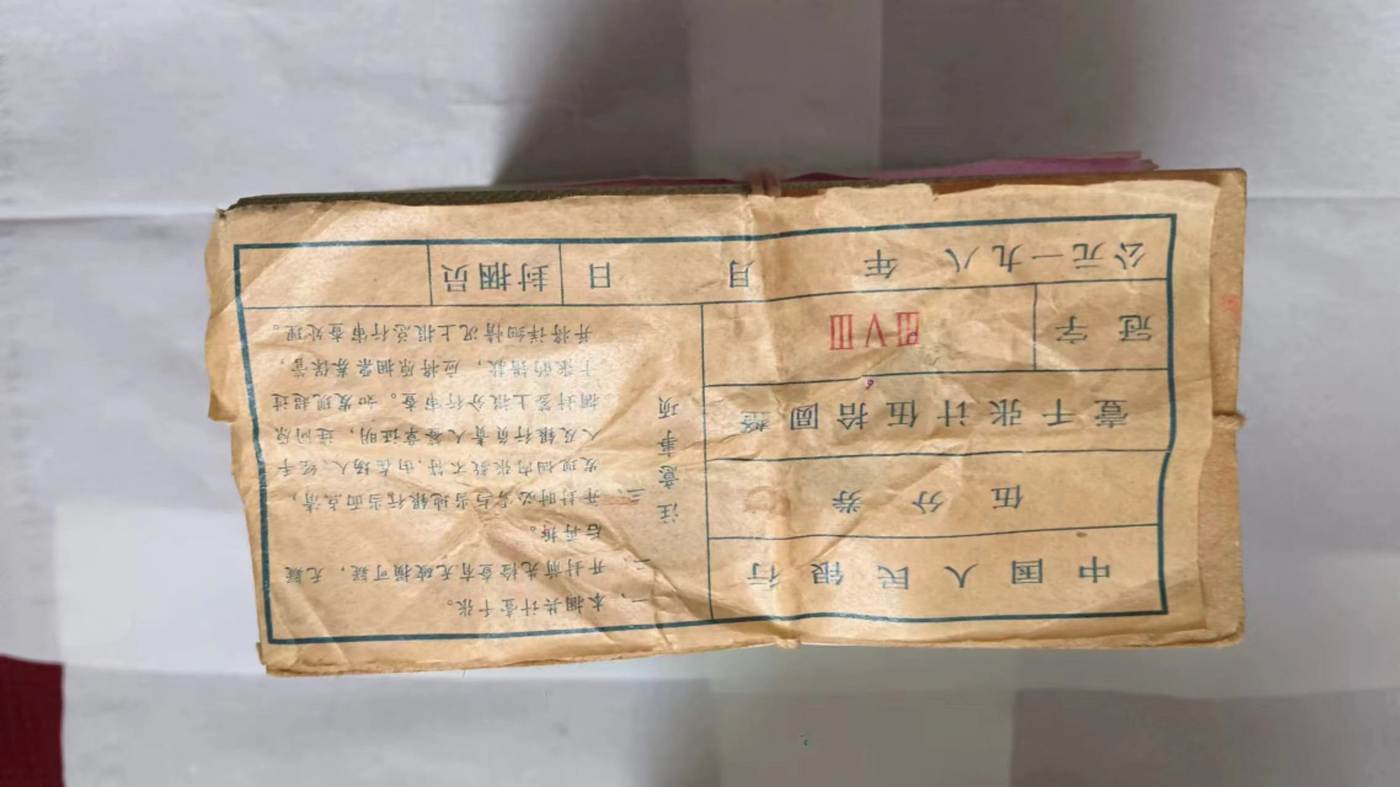 中国人民银行
伍分券
壹千张计伍拾圆整
冠字 ⅢⅤⅢ
注意事项
一、本捆共计壹千张。
二、开封前先检查有无破损可疑，无疑
后再拆。
三、开封时必须与当地银行当面点清，
发现捆内张数不符，由在场人、经手
人及银行负责人签章证明，连同原
捆封签上报分行审查。如发现超过
十张的错款，应将原捆票券保管，
并将详细情况上报总行审查处理。
公元一九八 年 月 日 封捆员